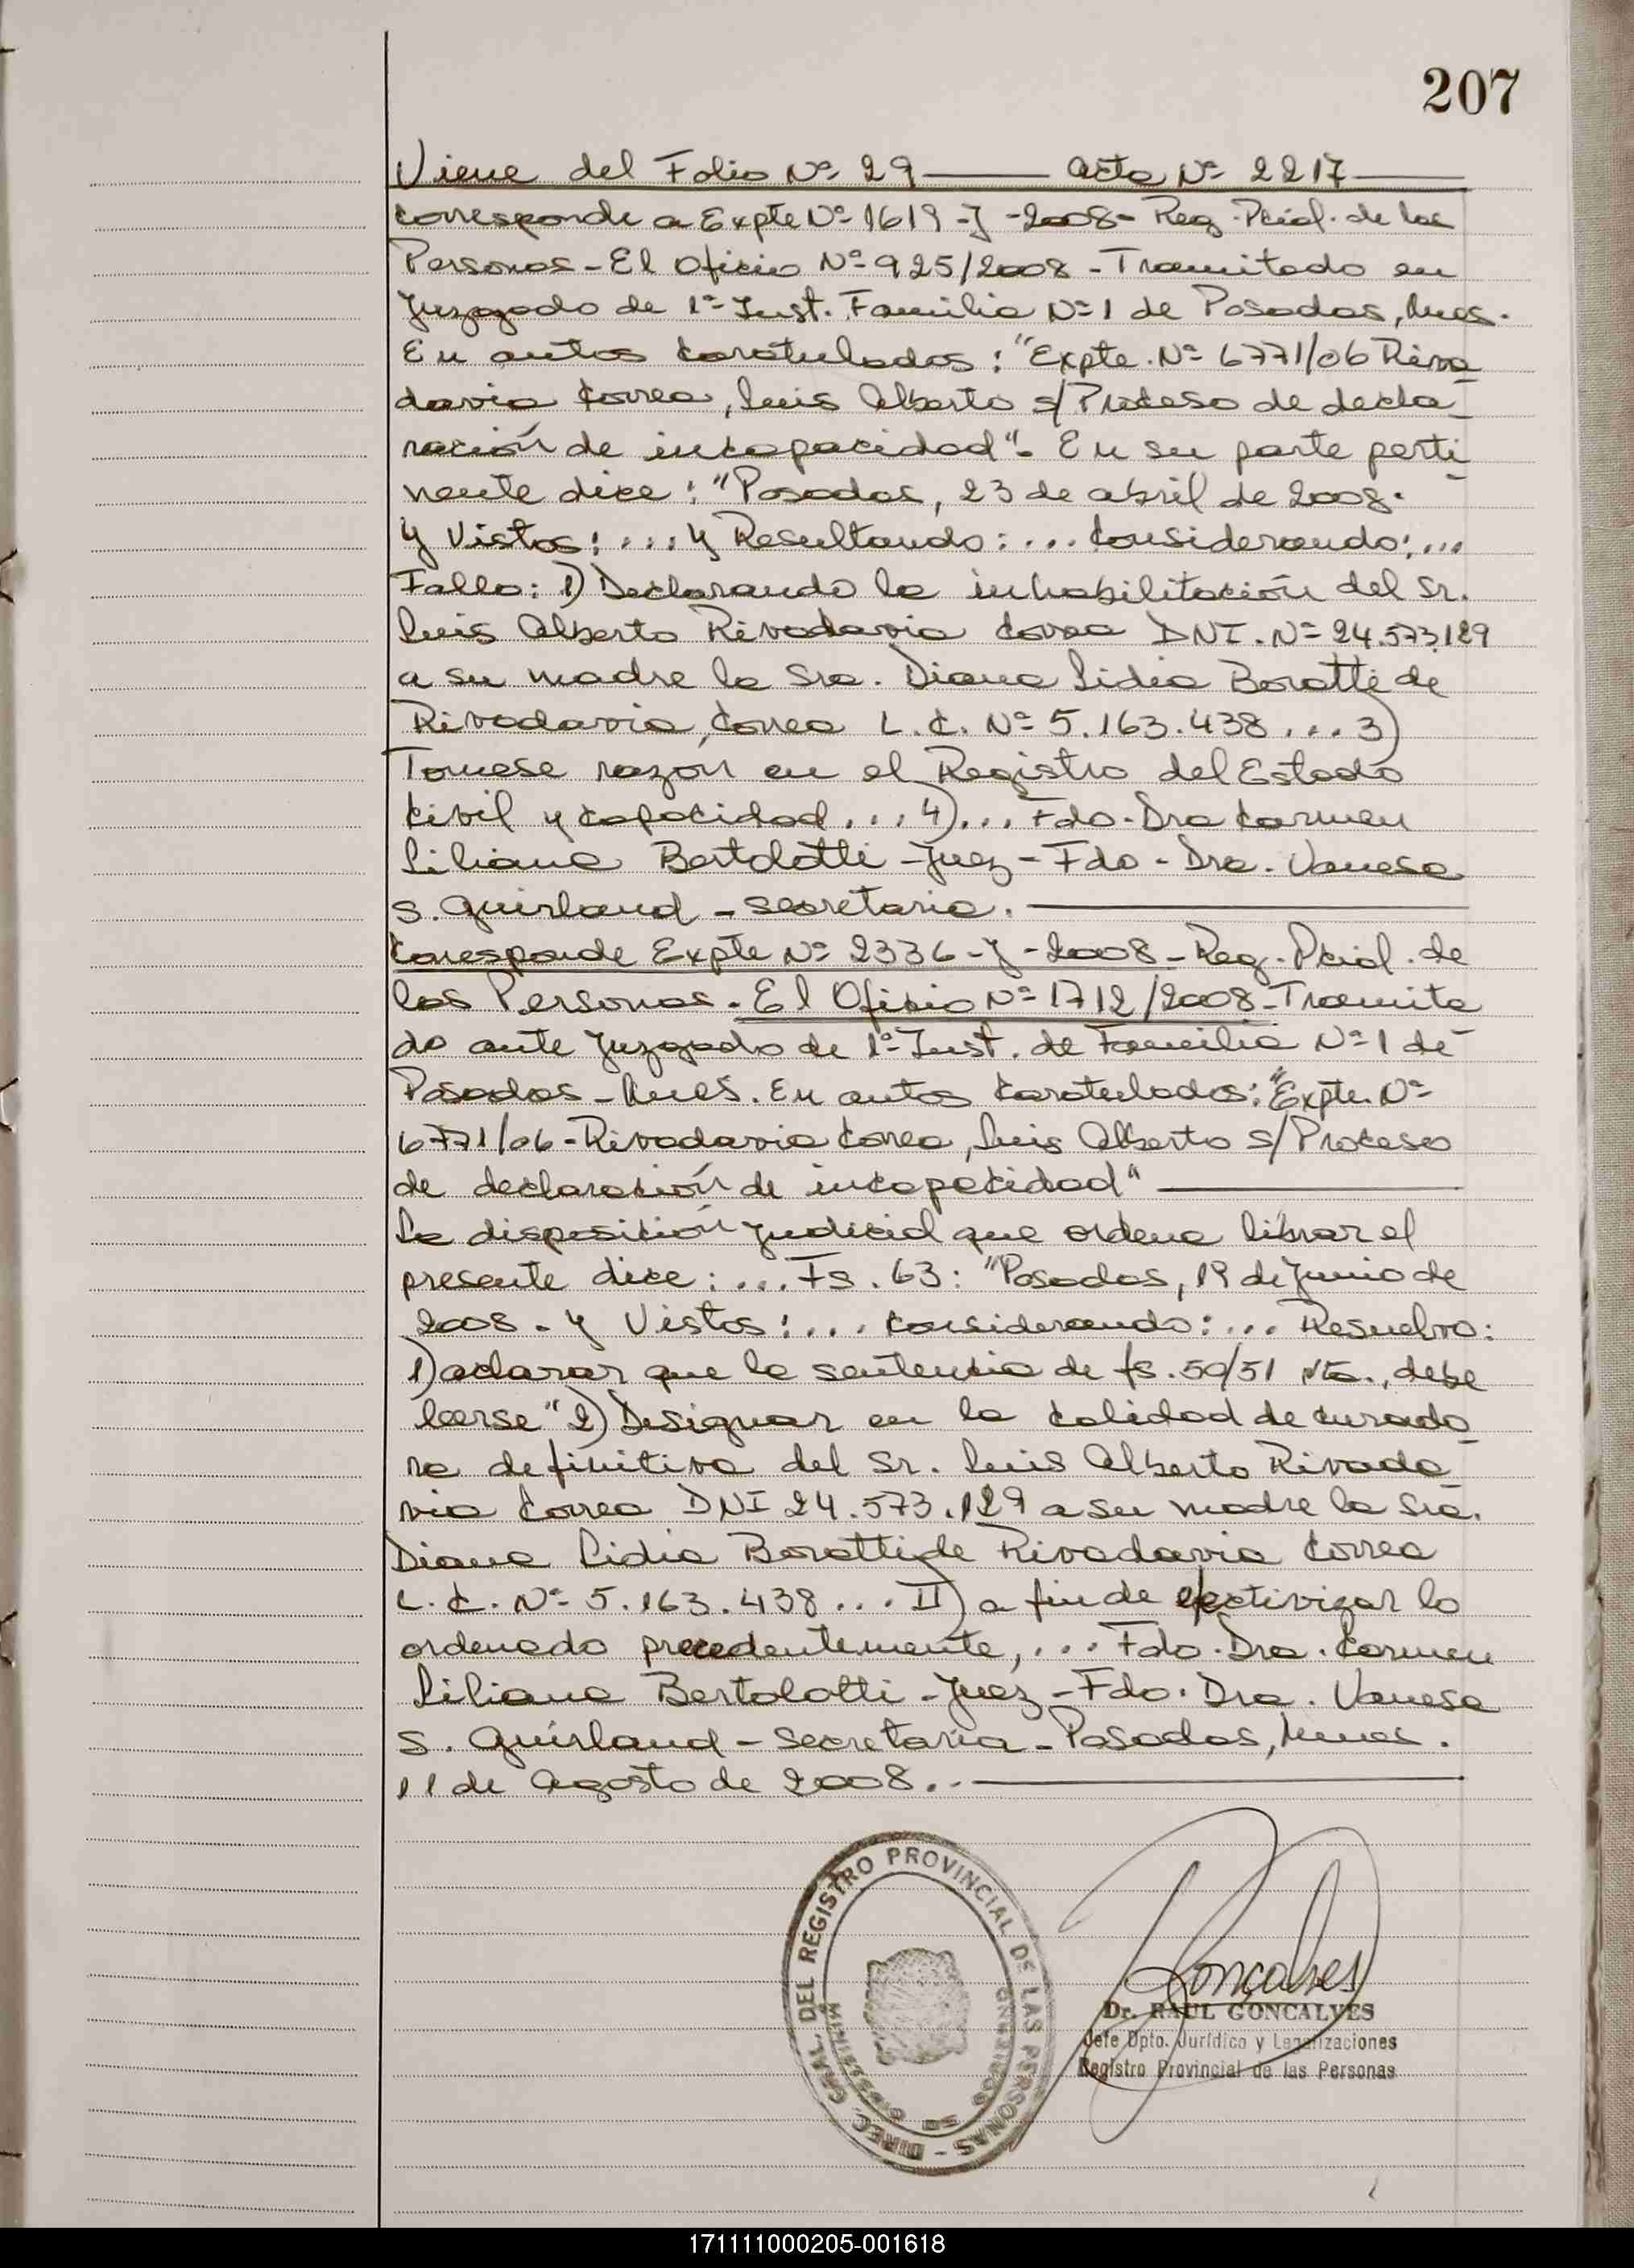 207
Viene del Folio Nº 29 —— Acta Nº 2217 ——
Corresponde a Expte Nº 1619-J-2008- Reg. Pcial. de las
Personas - El Oficio Nº 925/2008 - Tramitado en
Juzgado de 1ª Inst. Familia Nº 1 de Posadas, Mnes.
En autos Caratulados: "Expte. Nº 6771/06 Riva_
davia Correa, Luis Alberto s/ Proceso de decla_
ración de incapacidad". En su parte perti_
nente dice: "Posadas, 23 de abril de 2008.
Y Vistos: ... y Resultando: ... Considerando: ...
Fallo: 1) Declarando la inhabilitación del Sr.
Luis Alberto Rivadavia Correa DNI. Nº 24.573.129
a su madre la Sra. Diana Lidia Boratti de
Rivadavia Correa L.C. Nº 5.163.438 ... 3)
Tomese razon en el Registro del Estado
Civil y Capacidad ... 4) ... Fdo. Dra Carmen
Liliana Bertolotti - Juez - Fdo - Dra. Vanesa
S. Guirland - Secretaria. ——
Corresponde Expte Nº 2336-J-2008- Reg. Pcial. de
las Personas. El Oficio Nº 1712/2008 - Tramita
do ante Juzgado de 1ª Inst. de Familia Nº 1 de
Posadas - Mnes. En autos Caratulados: "Expte. Nº
6771/06 - Rivadavia Correa, Luis Alberto s/ Proceso
de declaración de incapacidad" ——
La disposición Judicial que ordena librar el
presente dice: ... Fs. 63: "Posadas, 19 de Junio de
2008. Y Vistos: ... Considerando: ... Resuelvo:
1) aclarar que la sentencia de fs. 50/51 vta., debe
leerse "2) Designar en la calidad de curado_
ra definitiva del Sr. Luis Alberto Rivada_
via Correa DNI 24.573.129 a su madre la Sra.
Diana Lidia Boratti de Rivadavia Correa
L.C. Nº 5.163.438 ... II) a fin de efectivizar lo
ordenado precedentemente, ... Fdo. Dra. Carmen
Liliana Bertolotti - Juez - Fdo. Dra. Vanesa
S. Guirland - Secretaria - Posadas, Mnes.
11 de Agosto de 2008. ——
DIREC. GRAL. DEL REGISTRO PROVINCIAL DE LAS PERSONAS -
Goncalves
Dr. RAUL GONCALVES
Jefe Dpto. Jurídico y Legalizaciones
Registro Provincial de las Personas
171111000205-001618